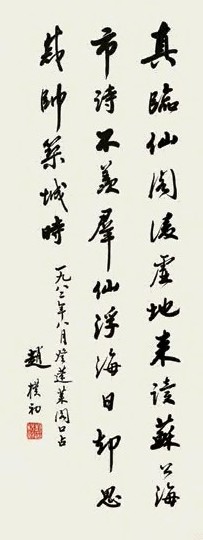 真临仙阁凌虚地来读苏公海
市诗不羡群仙浮海日却思
戚帅筑城时
一九八二年八月登蓬莱阁口占
赵朴初